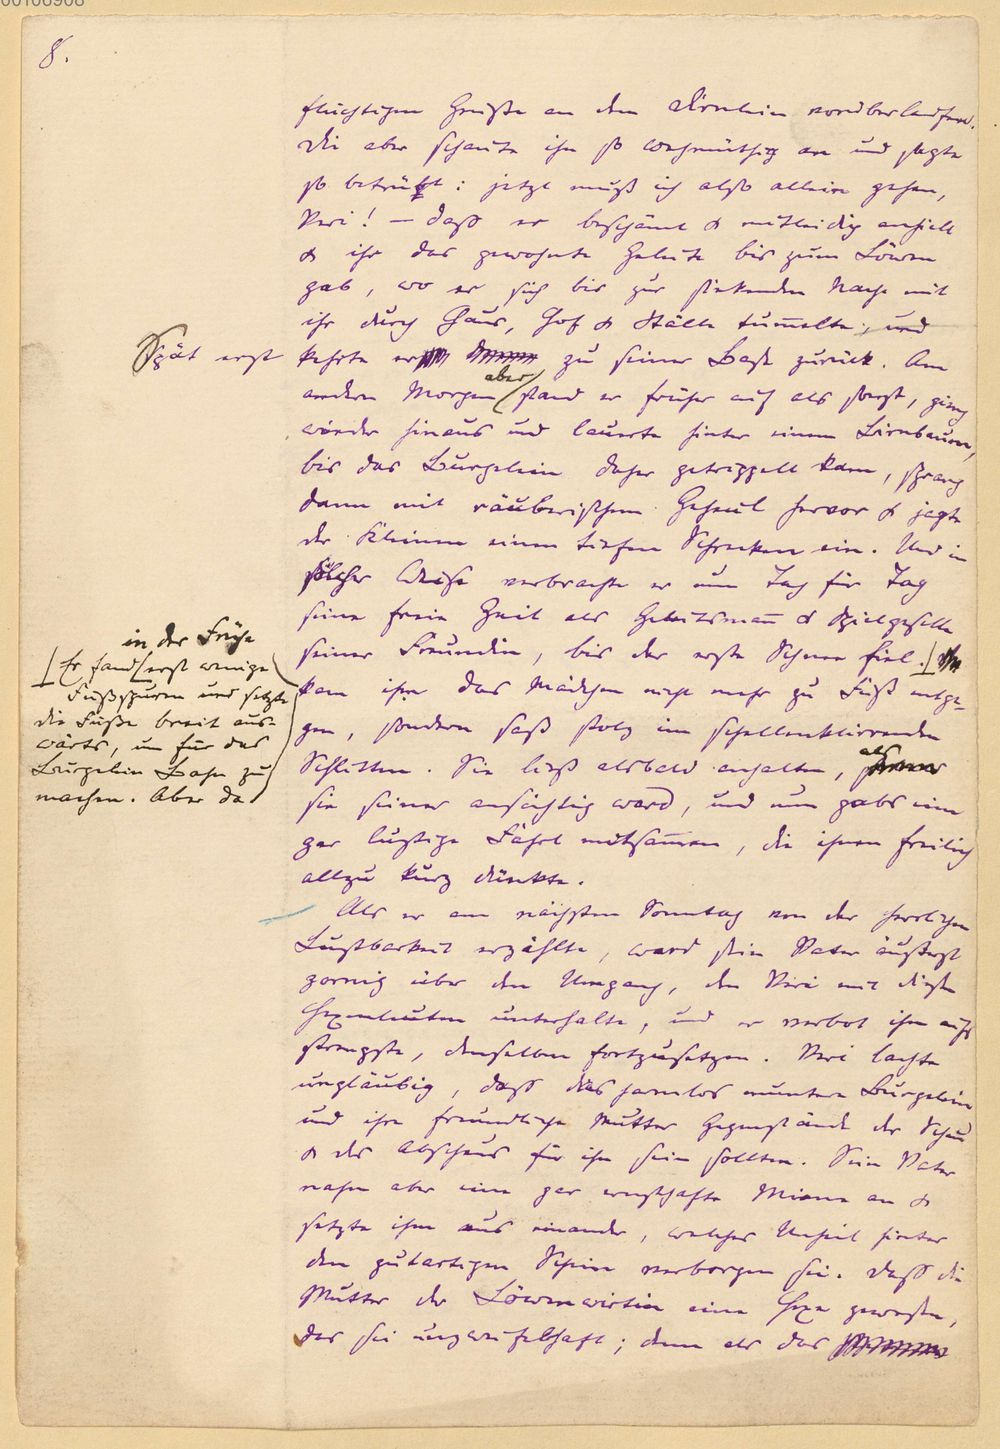 8.
flüchtigem Gruße an dem Dirnlein vorüberlaufen.
Die aber schaute ihn so wehmüthig an und sagte
so betrübt: jetzt muß ich also allein gehen,
Veri! — daß er beschämt & mitleidig anhielt
& ihr das gewohnte Geleite bis zum Löwen
gab, wo er sich bis zur sinkenden Nacht mit
ihr durch Haus, Hof & Ställe tum̅elte, und
Spät erst kehrte er zu seiner Base zurück. Am
andern Morgen aber stand er früher auf als sonst, gieng
wieder hinaus und lauerte hinter einem Birnbaum,
bis das Burgelein daher getrippelt kam, sprang
dann mit räuberischem Geheul hervor & jagte
der Kleinen einen tiefen Schrecken ein. Und in
solcher Weise verbrachte er nun Tag für Tag
seine freie Zeit als Geleitsman̅ & Spielgeselle
seiner Freundin, bis der erste Schnee fiel.
in der Frühe
Er fand erst wenige
Fußspuren und setzte
die Füße breit aus-
wärts, um für das
Burgelein Bahn zu
machen. Aber da
kam ihm das Mädchen nicht mehr zu Fuß entge-
gen, sondern saß stolz im schellenklirrenden
Schlitten. Sie ließ alsbald anhalten, als
sie seiner ansichtig ward, und nun gabs eine
gar lustige Fahrt mitsam̅en, die ihnen freilich
allzu kurz dünkte.
Als er am nächsten Sonntag von der herrlichen
Lustbarkeit erzählte, ward sein Vater äußerst
zornig über den Umgang, den Veri mit diesen
Hexenleuten unterhalte, und er verbot ihm aufs
strengste, denselben fortzusetzen. Veri lachte
ungläubig, daß das harmlos muntere Burgelein
und ihre freundliche Mutter Gegenstände der Scheu
& des Abscheus für ihn sein sollten. Sein Vater
nahm aber eine gar ernsthafte Miene an &
setzte ihm aus einander, welches Unheil hinter
dem gutartigen Schein verborgen sei. Daß die
Mutter der Löwenwirtin eine Hexe gewesen,
das sei unzweifelhaft; denn als das